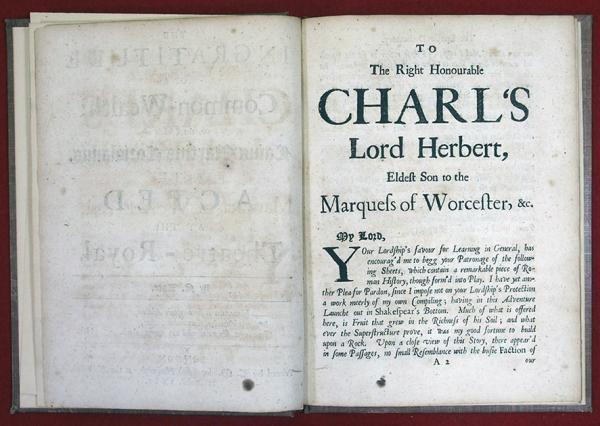 TO
The Right Honourable
CHARL'S
Lord Herbert,
Eldeſt Son to the
Marqueſs of Worceſter, &c.
My Lord,
YOur Lordſhip's favour for Learning in General, has
encourag'd me to begg your Patronage of the follow-
ing Sheets, which contain a remarkable piece of Ro-
man Hiſtory, though form'd into Play. I have yet ano-
ther Plea for Pardon, ſince I impoſe not on your Lordſhip's Protection
a work meerly of my own Compiling; having in this Adventure
Launcht out in Shakeſpear's Bottom. Much of what is offered
here, is Fruit that grew in the Richneſs of his Soil; and what
ever the Superſtructure prove, it was my good fortune to build
upon a Rock. Upon a cloſe view of this Story, there appear'd
in ſome Paſſages, no ſmall Reſemblance with the buſie Faction of
A 2 our